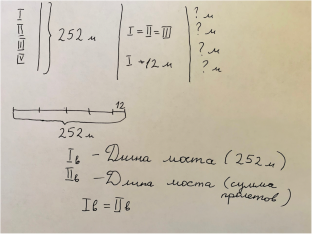 I
II
III
IV
252 м
I = II = III
I +12 м
? м
? м
? м
? м
12
252 м
Iв - Длина моста (252 м)
IIв - Длина моста (сумма
пролетов)
Iв = IIв